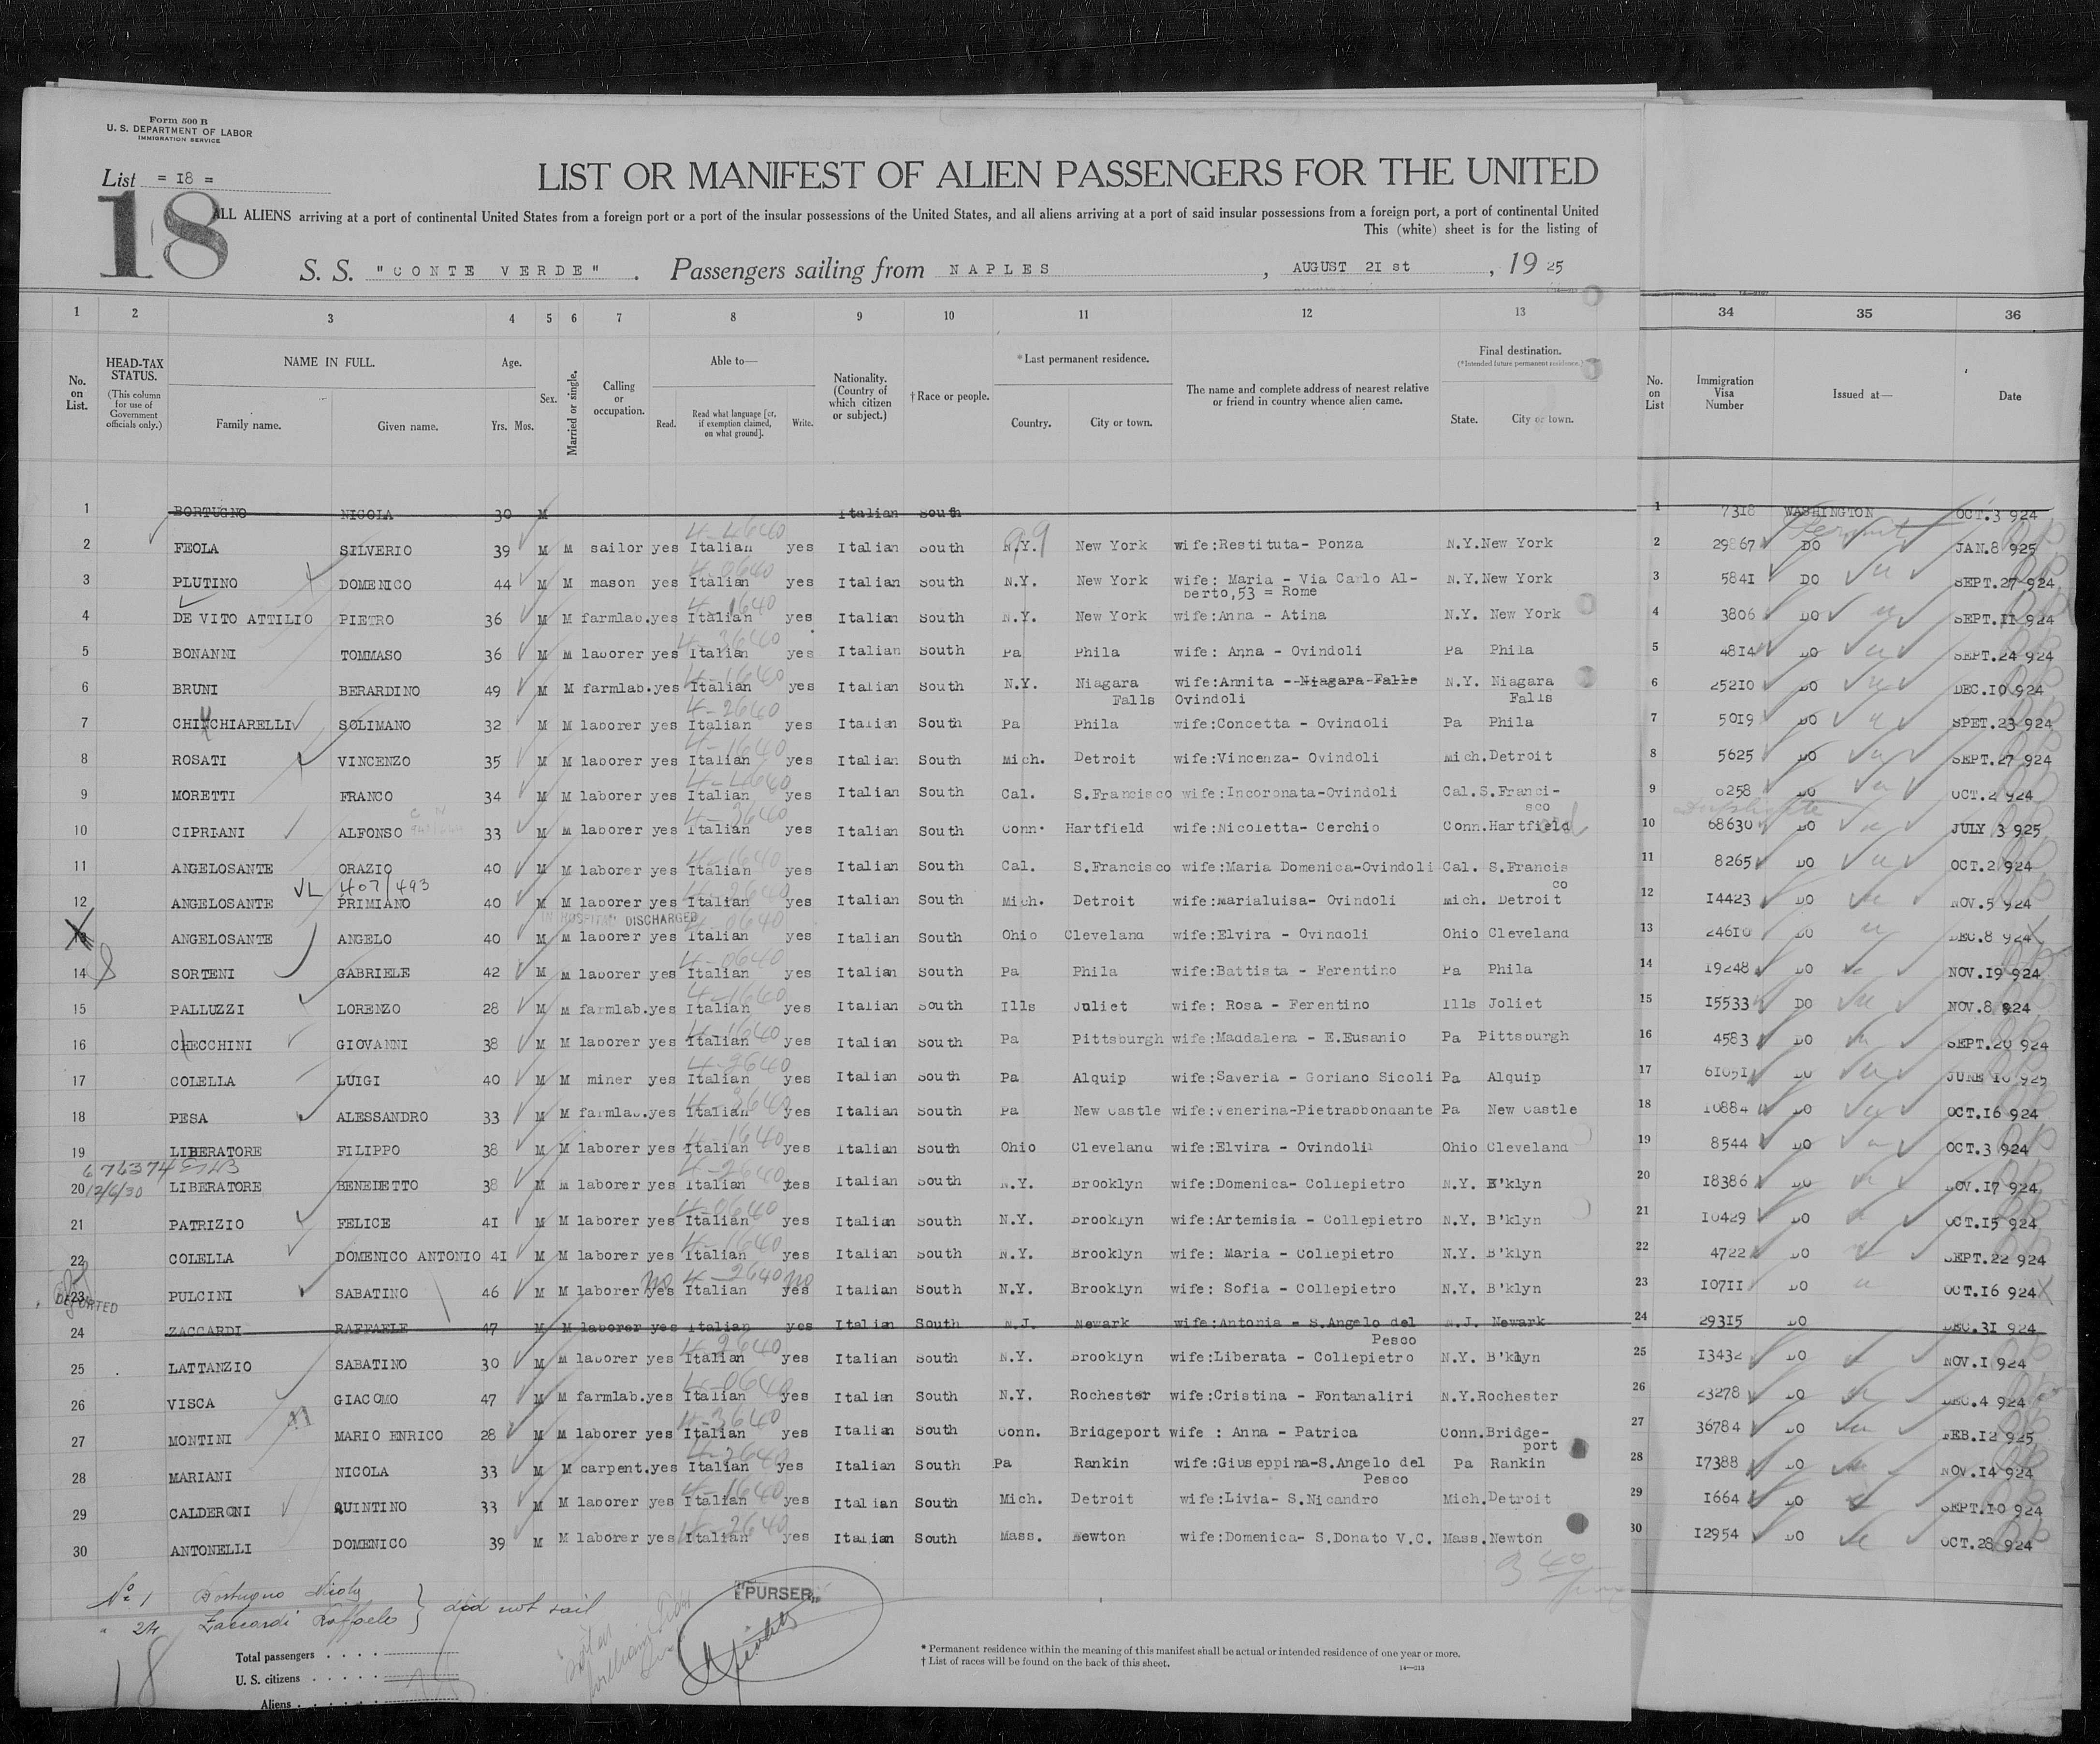 Form 500 B
U. S. DEPARTMENT OF LABOR
IMMIGRATION SERVICE
List = I8 =
18
LIST OR MANIFEST OF ALIEN PASSENGERS FOR THE UNITED
ALL ALIENS arriving at a port of continental United States from a foreign port or a port of the insular possessions of the United States, and all aliens arriving at a port of said insular possessions from a foreign port, a port of continental United
This (white) sheet is for the listing of
S. S. "CONTE VERDE" . Passengers sailing from NAPLES , AUGUST 2I st , 19 25
1 2 3 4 5 6 7 8 9 10 11 12 13 34 35 36
No. on List.
HEAD-TAX STATUS.
(This column for use of Government officials only.)
NAME IN FULL.
Family name. Given name.
Age.
Yrs. Mos.
Sex.
Married or single.
Calling or occupation.
Able to—
Read. Read what language [or, if exemption claimed, on what ground]. Write.
Nationality. (Country of which citizen or subject.)
† Race or people.
*Last permanent residence.
Country. City or town.
The name and complete address of nearest relative or friend in country whence alien came.
Final destination.
(*Intended future permanent residence.)
State. City or town.
No. on List
Immigration Visa Number
Issued at—
Date
1 BORTUGNO NICOLA 30 M Italian South 1 7318 WASHINGTON OCT.3 924
4-4640 99 Permit
2 FEOLA SILVERIO 39 M M sailor yes Italian yes Italian South N.Y. New York wife:Restituta- Ponza N.Y.New York 2 29867 DO JAN.8 925
3 PLUTINO DOMENICO 44 M M mason yes Italian yes Italian South N.Y. New York wife: Maria - Via Carlo Al- N.Y.New York 3 584I DO SEPT.27 924
berto,53 = Rome
4-1640
4 DE VITO ATTILIO PIETRO 36 M M farmlab.yes Italian yes Italian South N.Y. New York wife:Anna - Atina N.Y. New York 4 3806 DO SEPT.II 924
4-3640
5 BONANNI TOMMASO 36 M M laborer yes Italian yes Italian South Pa Phila wife: Anna - Ovindoli Pa Phila 5 48I4 DO SEPT.24 924
4-1640
6 BRUNI BERARDINO 49 M M farmlab.yes Italian yes Italian South N.Y. Niagara wife:Annita --Niagara-Falls N.Y. Niagara 6 252I0 DO DEC.I0 924
Falls Ovindoli Falls
4-2640
7 CHINCHIARELLI SOLIMANO 32 M M laborer yes Italian yes Italian South Pa Phila wife:Concetta - Ovindoli Pa Phila 7 50I9 DO SPET.23 924
4-1640
8 ROSATI VINCENZO 35 M M laborer yes Italian yes Italian South Mich. Detroit wife:Vincenza- Ovindoli Mich.Detroit 8 5625 DO SEPT.27 924
4-4640
9 MORETTI FRANCO 34 M M laborer yes Italian yes Italian South Cal. S.Francisco wife:Incoronata-Ovindoli Cal.S.Franci- 9 6258 DO OCT.2 924
sco
4-3640 Duplicate
10 CIPRIANI ALFONSO 33 M M laborer yes Italian yes Italian South Conn. Hartfield wife:Nicoletta- Cerchio Conn.Hartfield 10 68630 DO JULY 3 925
4-1640
11 ANGELOSANTE ORAZIO 40 M M laborer yes Italian yes Italian South Cal. S.Francisco wife:Maria Domenica-Ovindoli Cal. S.Francis 11 8265 DO OCT.2 924
co
VL 407/493 4-2640
12 ANGELOSANTE PRIMIANO 40 M M laborer yes Italian yes Italian South Mich. Detroit wife:Marialuisa- Ovindoli Mich. Detroit 12 I4423 DO NOV.5 924
IN HOSPITAL DISCHARGED 4-0640
13 ANGELOSANTE ANGELO 40 M M laborer yes Italian yes Italian South Ohio Cleveland wife:Elvira - Ovindoli Ohio Cleveland 13 246I0 DO DEC.8 924
4-0640
14 SORTENI GABRIELE 42 M M laborer yes Italian yes Italian South Pa Phila wife:Battista - Ferentino Pa Phila 14 I9248 DO NOV.I9 924
4-1640
15 PALLUZZI LORENZO 28 M M farmlab.yes Italian yes Italian South Ills Juliet wife: Rosa - Ferentino Ills Joliet 15 I5533 DO NOV.8 924
4-1640
16 CHECCHINI GIOVANNI 38 M M laborer yes Italian yes Italian South Pa Pittsburgh wife:Maddalena - E.Eusanio Pa Pittsburgh 16 4583 DO SEPT.20 924
4-2640
17 COLELLA LUIGI 40 M M miner yes Italian yes Italian South Pa Alquip wife:Saveria - Goriano Sicoli Pa Alquip 17 6I05I DO JUNE I0 925
4-3640
18 PESA ALESSANDRO 33 M M farmlab.yes Italian yes Italian South Pa New Castle wife:Venerina-Pietrabbondante Pa New Castle 18 I0884 DO OCT.I6 924
4-1640
19 LIBERATORE FILIPPO 38 M M laborer yes Italian yes Italian South Ohio Cleveland wife:Elvira - Ovindoli Ohio Cleveland 19 8544 DO OCT.3 924
4-2640
20 12/6/30 LIBERATORE BENEDETTO 38 M M laborer yes Italian yes Italian South N.Y. Brooklyn wife:Domenica- Collepietro N.Y. B'klyn 20 I8386 DO NOV.I7 924
4-0640
21 PATRIZIO FELICE 4I M M laborer yes Italian yes Italian South N.Y. Brooklyn wife:Artemisia - Collepietro N.Y. B'klyn 21 I0429 DO OCT.I5 924
4-1640
22 COLELLA DOMENICO ANTONIO 4I M M laborer yes Italian yes Italian South N.Y. Brooklyn wife: Maria - Collepietro N.Y. B'klyn 22 4722 DO SEPT.22 924
no 4-2640 no
23 PULCINI SABATINO 46 M M laborer yes Italian yes Italian South N.Y. Brooklyn wife: Sofia - Collepietro N.Y. B'klyn 23 I07II DO OCT.I6 924 X
DEPORTED
24 ZACCARDI RAFFAELE 47 M M laborer yes Italian yes Italian South N.J. Newark wife:Antonia - S.Angelo del N.J. Newark 24 293I5 DO DEC.3I 924
Pesco
4-2640
25 LATTANZIO SABATINO 30 M M laborer yes Italian yes Italian South N.Y. Brooklyn wife:Liberata - Collepietro N.Y. B'klyn 25 I3432 DO NOV.I 924
4-0640
26 VISCA GIACOMO 47 M M farmlab.yes Italian yes Italian South N.Y. Rochester wife:Cristina - Fontanaliri N.Y.Rochester 26 23278 DO DEC.4 924
4-3640
27 MONTINI MARIO ENRICO 28 M M laborer yes Italian yes Italian South Conn. Bridgeport wife : Anna - Patrica Conn.Bridge- 27 36784 DO FEB.I2 925
port
4-2640
28 MARIANI NICOLA 33 M M carpent.yes Italian yes Italian South Pa Rankin wife:Giuseppina-S.Angelo del Pa Rankin 28 I7388 DO NOV.I4 924
Pesco
4-1640
29 CALDERONI QUINTINO 33 M M laborer yes Italian yes Italian South Mich. Detroit wife:Livia- S.Nicandro Mich.Detroit 29 I664 DO SEPT.I0 924
4-2640
30 ANTONELLI DOMENICO 39 M M laborer yes Italian yes Italian South Mass. Newton wife:Domenica- S.Donato V.C. Mass.Newton 30 I2954 DO OCT.28 924
No 1 Bortugno Nicola
" 24 Zaccardi Raffaele } did not sail
PURSER
18
Total passengers . . . .
U. S. citizens . . . . .
Aliens . . . . . .
* Permanent residence within the meaning of this manifest shall be actual or intended residence of one year or more.
† List of races will be found on the back of this sheet.
14—313